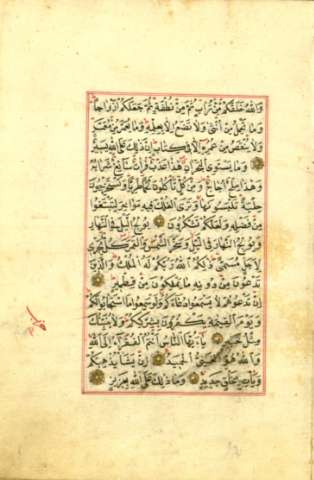 وَاللّٰهُ خَلَقَكُمْ مِنْ تُرَابٍ ثُمَّ مِنْ نُطْفَةٍ ثُمَّ جَعَلَكُمْ اَزْوَاجًا
وَمَا تَحْمِلُ مِنْ اُنْثٰى وَلَا تَضَعُ اِلَّا بِعِلْمِهٖ وَمَا يُعَمَّرُ مِنْ مُعَمَّرٍ
وَلَا يُنْقَصُ مِنْ عُمُرِهٖ اِلَّا فِي كِتَابٍ اِنَّ ذٰلِكَ عَلَى اللّٰهِ يَسِيرٌ
وَمَا يَسْتَوِي الْبَحْرَانِ هٰذَا عَذْبٌ فُرَاتٌ سَائِغٌ شَرَابُهُ
وَهٰذَا مِلْحٌ اُجَاجٌ وَمِنْ كُلٍّ تَأْكُلُونَ لَحْمًا طَرِيًّا وَتَسْتَخْرِجُونَ
حِلْيَةً تَلْبَسُونَهَا وَتَرَى الْفُلْكَ فِيهِ مَوَاخِرَ لِتَبْتَغُوا
مِنْ فَضْلِهٖ وَلَعَلَّكُمْ تَشْكُرُونَ يُولِجُ الَّيْلَ فِي النَّهَارِ
وَيُولِجُ النَّهَارَ فِي الَّيْلِ وَسَخَّرَ الشَّمْسَ وَالْقَمَرَ كُلٌّ يَجْرِي
لِاَجَلٍ مُسَمًّى ذٰلِكُمُ اللّٰهُ رَبُّكُمْ لَهُ الْمُلْكُ وَالَّذِينَ
تَدْعُونَ مِنْ دُونِهٖ مَا يَمْلِكُونَ مِنْ قِطْمِيرٍ
اِنْ تَدْعُوهُمْ لَا يَسْمَعُوا دُعَاءَكُمْ وَلَوْ سَمِعُوا مَا اسْتَجَابُوا لَكُمْ
وَيَوْمَ الْقِيٰمَةِ يَكْفُرُونَ بِشِرْكِكُمْ وَلَا يُنَبِّئُكَ
مِثْلُ خَبِيرٍ يَا اَيُّهَا النَّاسُ اَنْتُمُ الْفُقَرَاءُ اِلَى اللّٰهِ
وَاللّٰهُ هُوَ الْغَنِيُّ الْحَمِيدُ اِنْ يَشَأْ يُذْهِبْكُمْ
وَيَأْتِ بِخَلْقٍ جَدِيدٍ وَمَا ذٰلِكَ عَلَى اللّٰهِ بِعَزِيزٍ